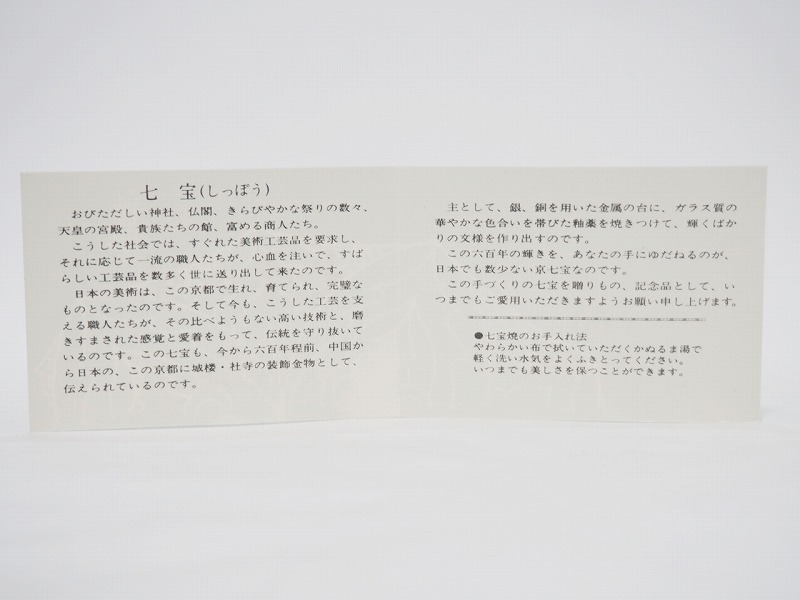 七 宝(しっぽう)
おびただしい神社、仏閣、きらびやかな祭りの数々、
天皇の宮殿、貴族たちの館、富める商人たち。
こうした社会では、すぐれた美術工芸品を要求し、
それに応じて一流の職人たちが、心血を注いで、すば
らしい工芸品を数多く世に送り出して来たのです。
日本の美術は、この京都で生れ、育てられ、完璧な
ものとなったのです。そして今も、こうした工芸を支
える職人たちが、その比べようもない高い技術と、磨
きすまされた感覚と愛着をもって、伝統を守り抜いて
いるのです。この七宝も、今から六百年程前、中国か
ら日本の、この京都に城楼・社寺の装飾金物として、
伝えられているのです。
主として、銀、銅を用いた金属の台に、ガラス質の
華やかな色合いを帯びた釉薬を焼きつけて、輝くばか
りの文様を作り出すのです。
この六百年の輝きを、あなたの手にゆだねるのが、
日本でも数少ない京七宝なのです。
この手づくりの七宝を贈りもの、記念品として、い
つまでもご愛用いただきますようお願い申し上げます。
●七宝焼のお手入れ法
やわらかい布で拭いていただくかぬるま湯で
軽く洗い水気をよくふきとってください。
いつまでも美しさを保つことができます。